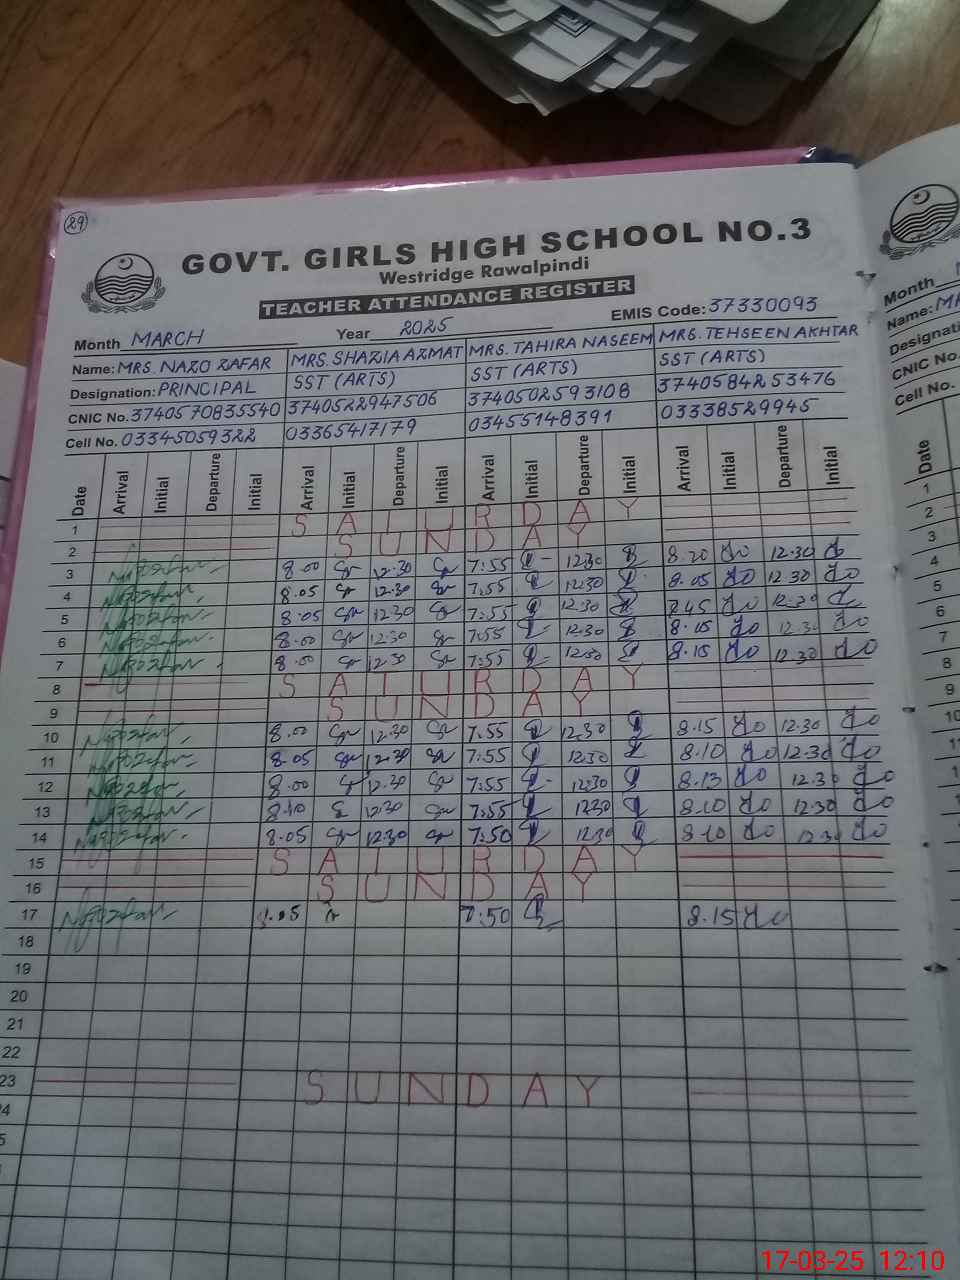 29
GOVT. GIRLS HIGH SCHOOL NO.3
Westridge Rawalpindi
TEACHER ATTENDANCE REGISTER
EMIS Code: 37330093
Month MARCH Year 2025
Name: MRS. NAZO ZAFAR MRS. SHAZIA AZMAT MRS. TAHIRA NASEEM MRS. TEHSEEN AKHTAR
Designation: PRINCIPAL SST (ARTS) SST (ARTS) SST (ARTS)
CNIC No. 3740570835540 3740522947506 3740502593108 3740584253476
Cell No. 03345059322 03365417179 03455148391 03338529945
Date Arrival Initial Departure Initial Arrival Initial Departure Initial Arrival Initial Departure Initial Arrival Initial Departure Initial
1 SATURDAY
2 SUNDAY
3 8.00 12.30 7:55 12.30 8.20 12.30
4 8.05 12.30 7:55 12.30 8.05 12.30
5 8.05 12.30 7:55 12.30 12.30
6 8.00 12.30 7:55 12.30 8.15 12.30
7 8.00 12.30 7:55 12.30 8.15 12.30
8 SATURDAY
9 SUNDAY
10 8.00 12.30 7:55 12.30 8.15 12.30
11 8.05 12.30 7:55 12.30 8.10 12.30
12 8.00 12.30 7:55 12.30 8.13 12.30
13 8.10 12.30 7:55 12.30 8.10 12.30
14 8.05 12.30 7:50 12.30 8.10 12.30
15 SATURDAY
16 SUNDAY
17 7:50 8.15
18
19
20
21
22
23 SUNDAY
Month
Name:
CNIC No.
Cell No.
Date
1
2
3
4
5
6
7
8
9
10
17-03-25 12:10